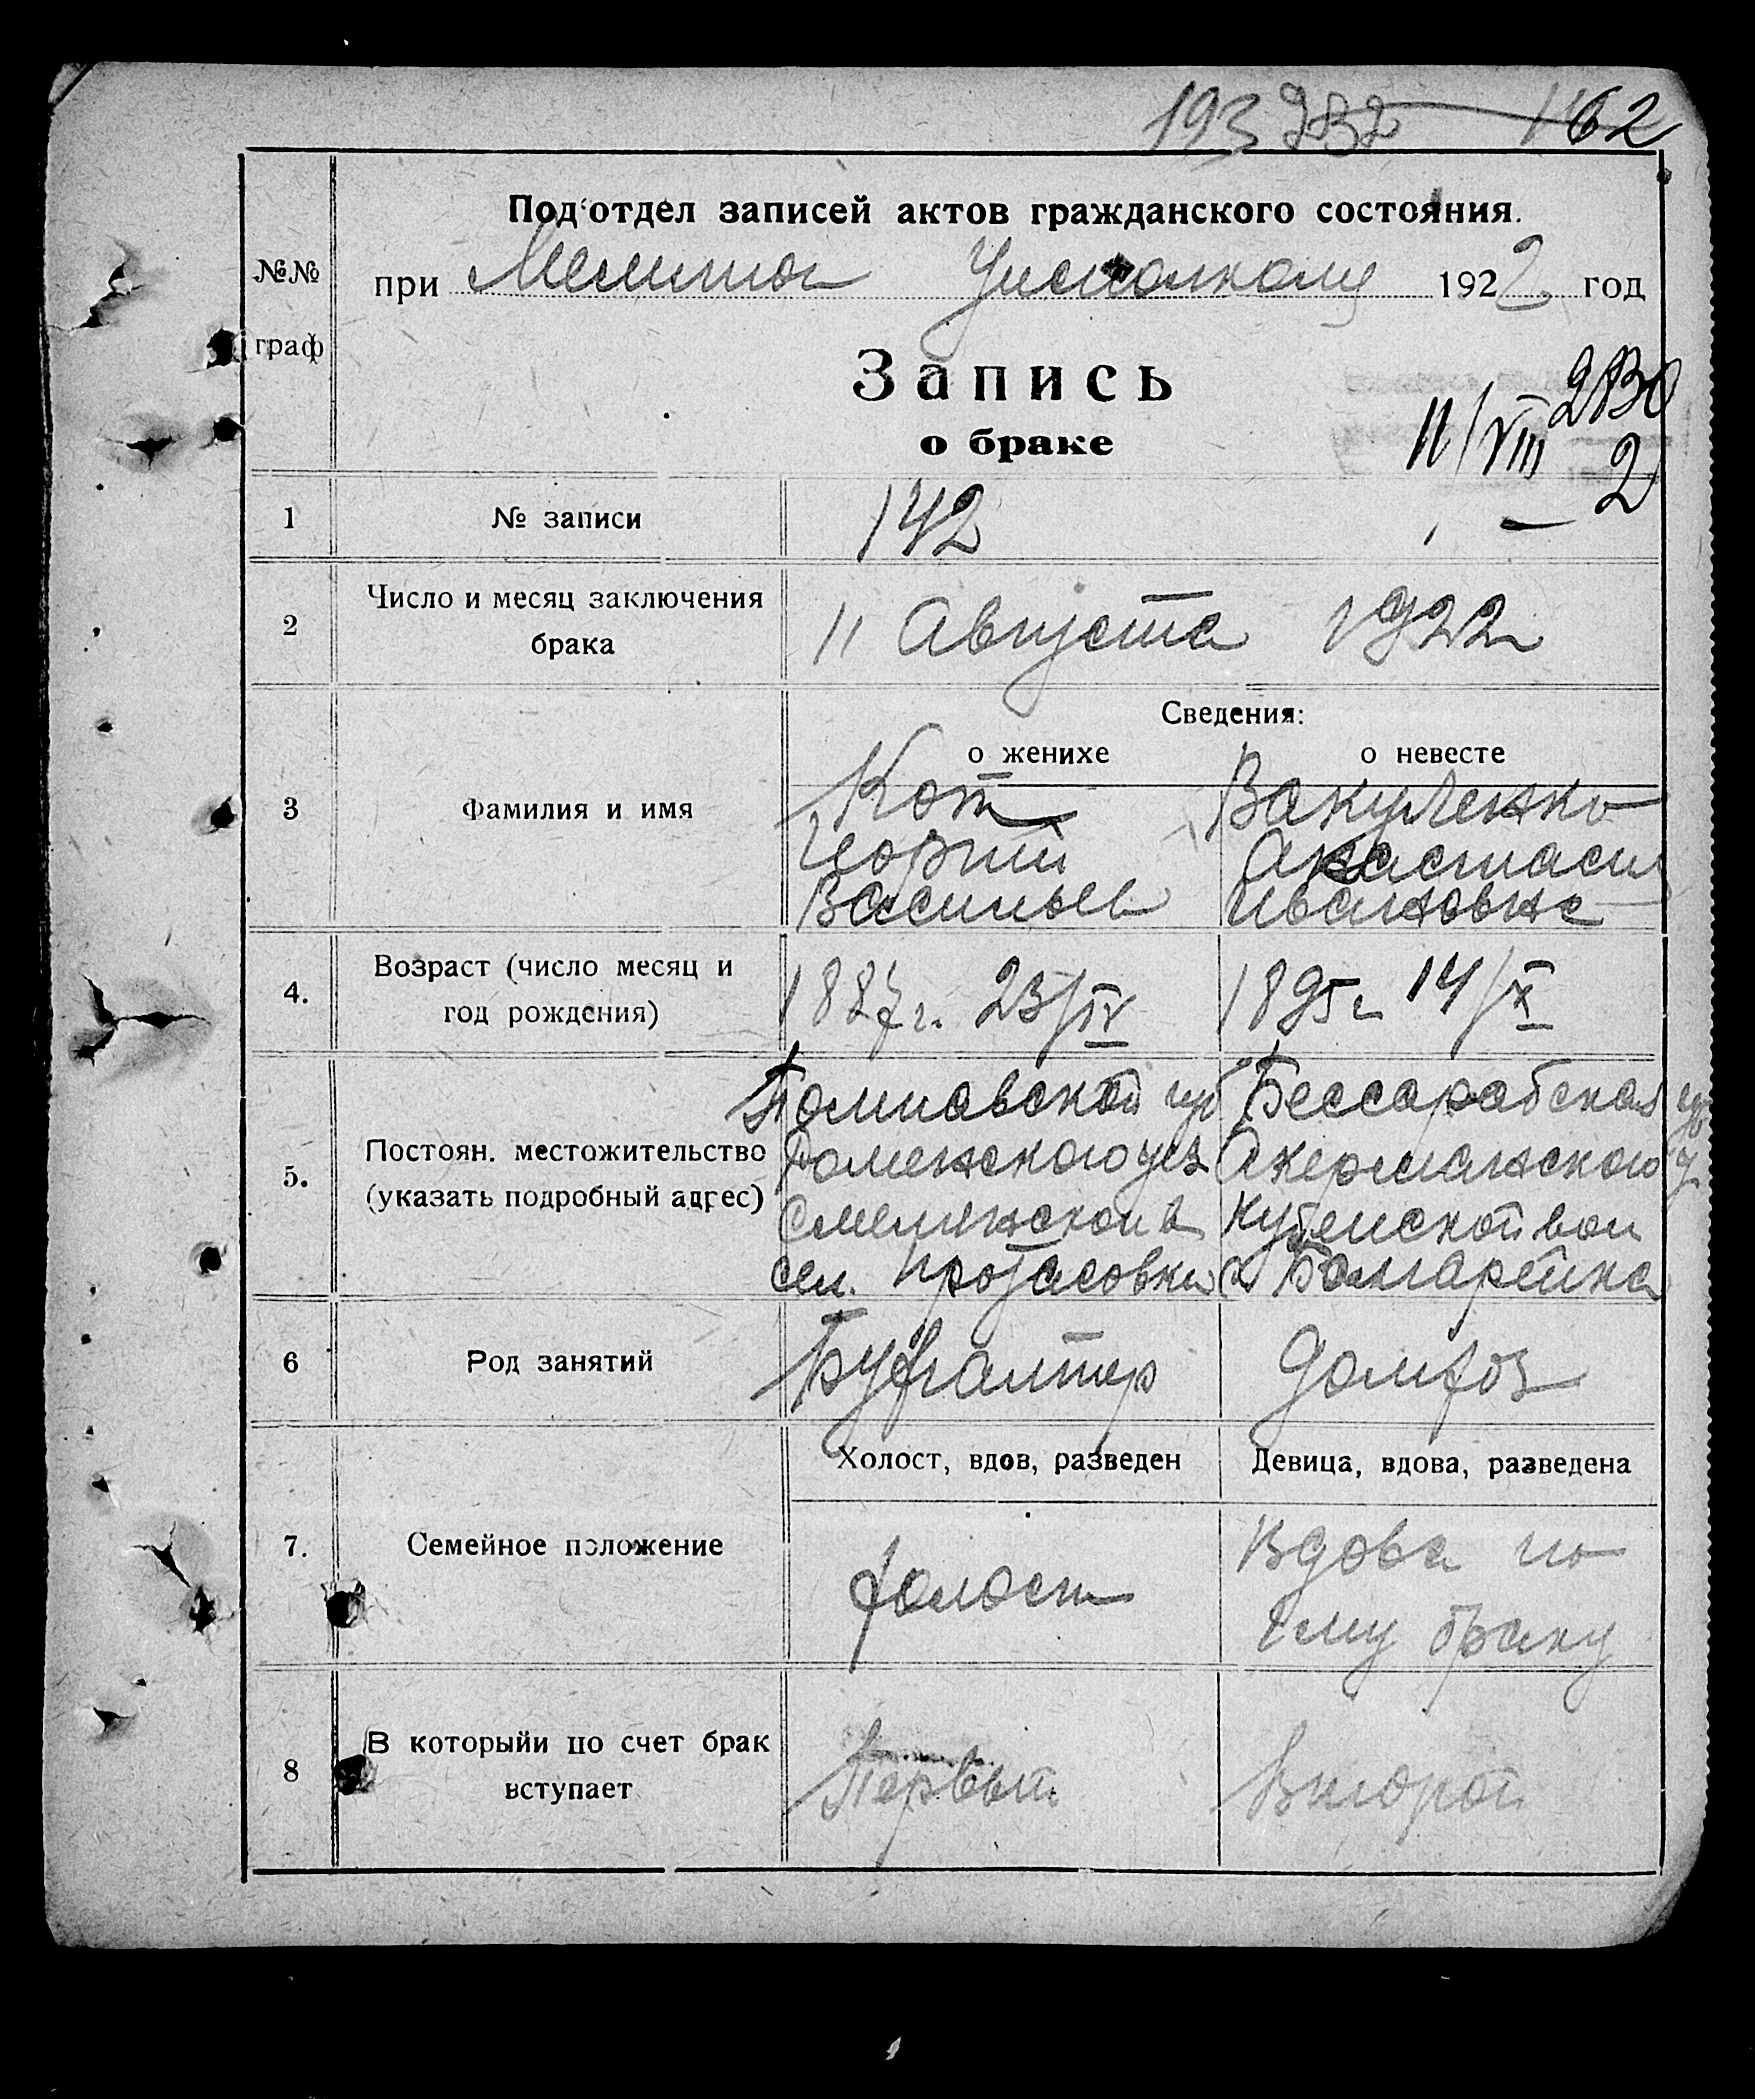 193 232 162
Под'отдел записей актов гражданского состояния.
№№
граф
при Мелитоп Уисполкому 1922 год
Запись
о браке
11/VIII 2
1 № записи 142
2 Число и месяц заключения
брака
11 Августа 1922
Сведения:
о женихе о невесте
3 Фамилия и имя
Кот Вакуленко
Георгий Анастасия
Васильев Ивановна
4. Возраст (число месяц и
год рождения)
1887 г. 23/IV 1895 г 14/X
5. Постоян. местожительство
(указать подробный адрес)
Полтавской губ Бессарабская губ
Роменского уез Акерманского у.
Смелянской в Кубейской вол
сел. Протасовки с Болгарейка
6 Род занятий Буфгалтер домхоз
Холост, вдов, разведен Девица, вдова, разведена
7. Семейное положение холост Вдова по
1му браку
8 В которыйи по счет брак
вступает
Первый Второй